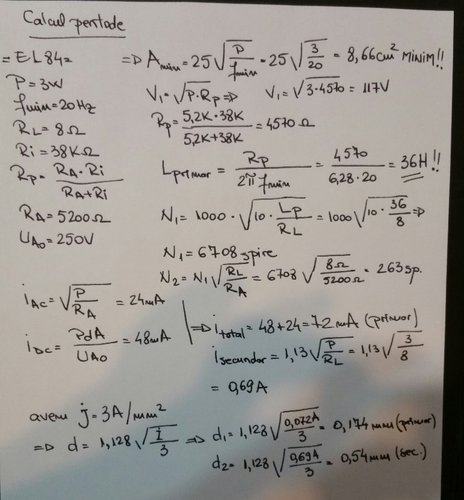 Calcul pentode
= EL84 =
P = 3W
fmin = 20 Hz
RL = 8Ω
Ri = 38KΩ
Rp = RA · Ri / RA + Ri
RA = 5200Ω
UAo = 250V
=> Amin = 25 √(P / fmin) = 25 √(3 / 20) = 8,66 cm² MINIM!!
V1 = √(P · Rp) => V1 = √(3 · 4570) = 117V
Rp = 5,2K · 38K / 5,2K + 38K = 4570 Ω
Lprimar = Rp / 2π fmin = 4570 / 6,28 · 20 = 36H !!
N1 = 1000 · √(10 · Lp / RL) = 1000 √(10 · 36 / 8) =>
N1 = 6708 spire
N2 = N1 √(RL / RA) = 6708 √(8Ω / 5200Ω) = 263 sp.
iAC = √(P / RA) = 24mA
iDC = PdA / UAo = 48mA
=> itotal = 48 + 24 = 72 mA (primar)
isecundar = 1,13 √(P / RL) = 1,13 √(3 / 8)
= 0,69A
avem j = 3A / mm²
=> d = 1,128 √(i / 3) => d1 = 1,128 √(0,072A / 3) = 0,174 mm (primar)
d2 = 1,128 √(0,69A / 3) = 0,54 mm (sec.)